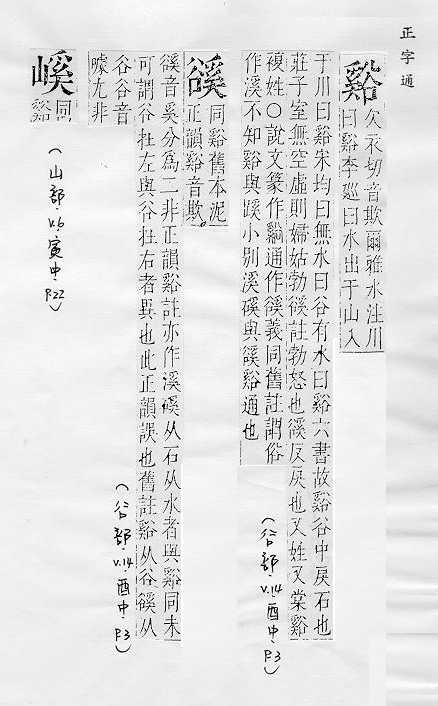 正字通
谿 欠衣切音欺爾雅水注川
曰谿李廵曰水出于山入
于川曰谿宋均曰無水曰谷有水曰谿六書故谿谷中戾石也
莊子室無空虛則婦姑勃豀註勃怒也豀反戾也又姓又棠谿
複姓〇說文篆作通作豀義同舊註謂俗
作溪不知谿與蹊小別溪磎與豀谿通也
(谷部.v.14.酉中.P.3)
豀 同谿舊本泥
正韻谿音欺
豀音奚分爲二非正韻谿註亦作溪磎从石从水者與谿同未
可謂谷在左與谷在右者異也此正韻誤也舊註谿从谷豀从
谷谷音
噱尤非
(谷部.v.14.酉中.P.3)
嵠 同
谿
(山部.v.6.寅中.P.22)